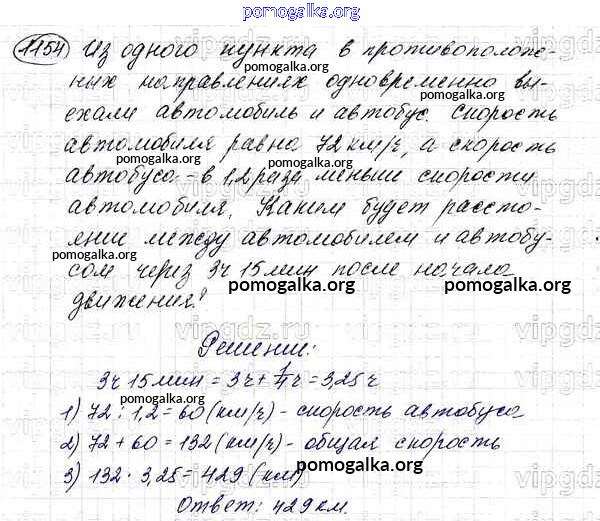 pomogalka.org
1154 Из одного пункта в противополож-
pomogalka.org
ных направлениях одновременно вы-
ехали автомобиль и автобус. Скорость
автомобиля равна 72 км/ч, а скорость
pomogalka.org pomogalka.org
автобуса - в 1,2 раза меньше скорости
автомобиля. Каким будет расстоя-
яние между автомобилем и автобу-
сом через 3ч 15мин после начала
pomogalka.org pomogalka.org
движения?
Решение:
3ч 15мин = 3ч + 1/4ч = 3,25ч
1) 72 : 1,2 = 60 (км/ч) - скорость автобуса
2) 72 + 60 = 132 (км/ч) - общая скорость
3) 132 · 3,25 = 429 (км)
pomogalka.org pomogalka.org
Ответ: 429 км.